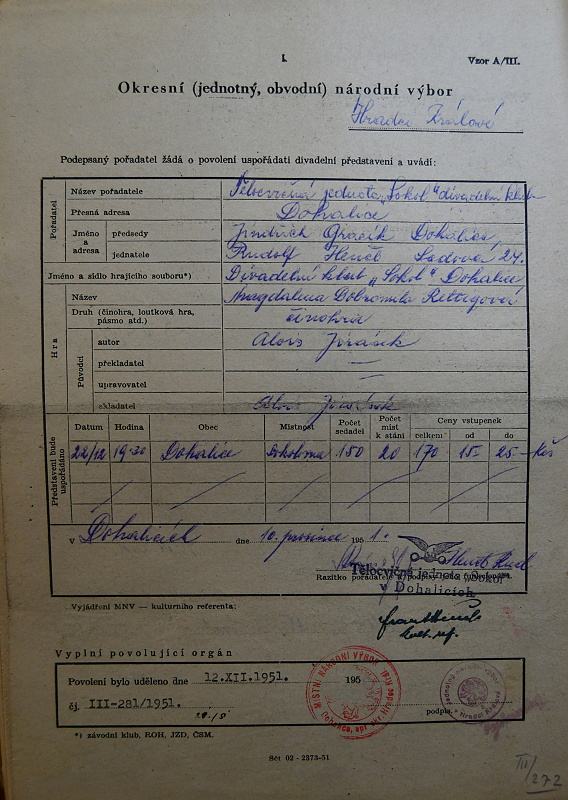 I.
Vzor A/III.
Okresní (jednotný, obvodní) národní výbor
Hradci Králové
Podepsaný pořadatel žádá o povolení uspořádati divadelní představení a uvádí:
Pořadatel
Název pořadatele Tělocvičná jednota „Sokol" divadelní klub
Přesná adresa Dohalice
Jméno a adresa předsedy Jindřich Dohalice
jednatele Rudolf Sadová 24.
Jméno a sídlo hrajícího souboru*) Divadelní klub „Sokol" Dohalice
Hra
Název Magdalena Dobromila Rettigová
Druh (činohra, loutková hra, pásmo atd.) činohra
Původci
autor Alois Jirásek
překladatel —
upravovatel
skladatel Alois Jirásek
Představení bude uspořádáno
Datum Hodina Obec Místnost Počet sedadel Počet míst k stání Ceny vstupenek
celkem od do
22/12 19·30 Dohalice Sokolovna 150 20 170 15.- 25.- Kčs
V Dohalicích dne 10. prosince 1951.
Razítko pořadatele a podpisy
Tělocvičná jednota Sokol
v Dohalicích
Vyjádření MNV — kulturního referenta:
Vyplní povolující orgán
Povolení bylo uděleno dne 12.XII.1951. 195
čj. III-281/1951.
podpis.
MÍSTNÍ NÁRODNÍ VÝBOR
*) závodní klub, ROH, JZD, ČSM.
Sčt 02 - 2373-51
III/272